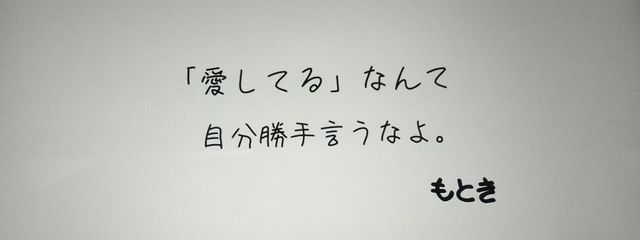 「愛してる」なんて
自分勝手言うなよ。
もとき